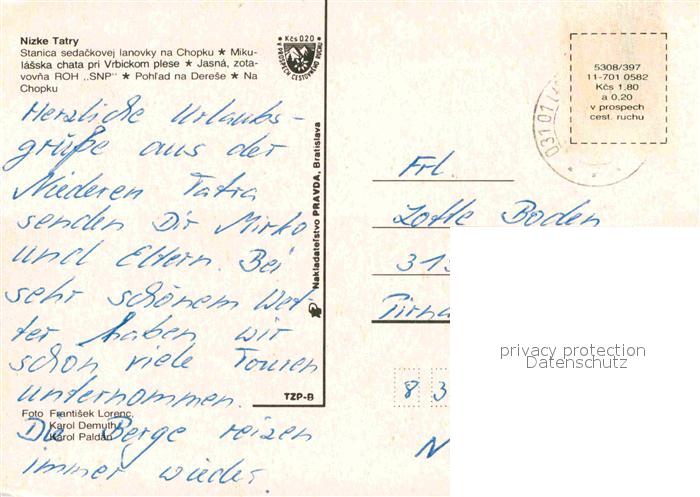 Nízke Tatry
Stanica sedačkovej lanovky na Chopku ★ Miku-
lášska chata pri Vrbickom plese ★ Jasná, zota-
vovňa ROH „SNP" ★ Pohľad na Dereše ★ Na
Chopku
Kčs 0.20
V PROSPECH CESTOVNÉHO RUCHU
5308/397
11-701 0582
Kčs 1,80
a 0,20
v prospech
cest. ruchu
031 01
Herzliche Urlaubs-
grüße aus der
Niederen Tatra
senden Dir Mirko
und Eltern. Bei
sehr schönem Wet-
ter haben wir
schon viele Touren
unternommen.
Die Berge reizen
immer wieder.
Nakladateľstvo PRAVDA, Bratislava
TZP-B
Foto František Lorenc,
Karol Demuth,
Karol Paldán
Frl.
Lotte Boden
Pirna
8 3
N
privacy protection
Datenschutz